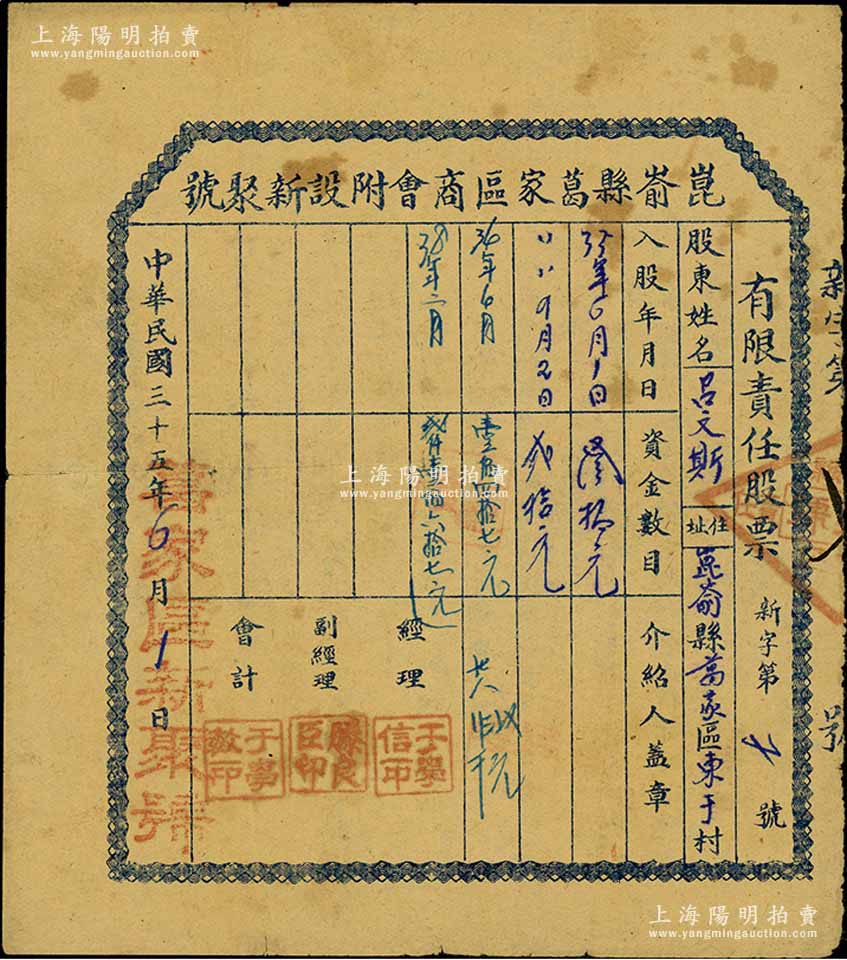 上海陽明拍賣
www.yangmingauction.com
崑嵛縣葛家區商會附設新聚號
有限責任股票 新字第 七 號
股東姓名 呂文斯 住址 崑嵛縣葛家區東于村
入股年月日 資金數目 介紹人蓋章
35年6月1日 叁拾元
〃〃9月2日 貳拾元
36年6月 壹百四拾七元
38年二月 貳仟壹佰六拾七元
經理
于學信印
副經理
滕良臣印
會計
于學敏印
中華民國三十五年6月1日
葛家區新聚號
新字第 號
上海陽明拍賣
www.yangmingauction.com
上海陽明拍賣
www.yangmingauction.com